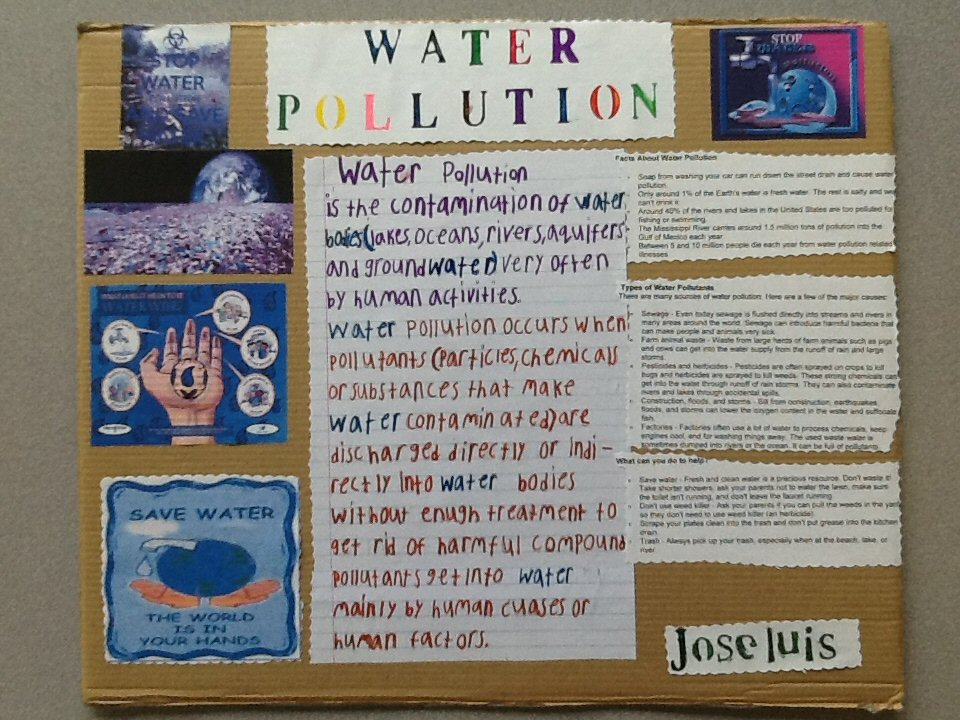 WATER
POLLUTION
STOP
WATER
STOP
Water Pollution
is the contamination of water
bodies(lakes, oceans, rivers, aquifers
and groundwater) very often
by human activities.
Water Pollution occurs when
pollutants (Particles, chemicals
or substances that make
water contaminated) are
discharged directly or Indi-
rectly Into water bodies
without enugh treatment to
get rid of harmful compound
pollutants get into water
mainly by human cuases or
human factors.
SAVE WATER
THE WORLD
IS IN
YOUR HANDS
Facts About Water Pollution
Soap from washing your car can run down the street drain and cause water
pollution.
Only around 1% of the Earth's water is fresh water. The rest is salty and we
can't drink it.
Around 40% of the rivers and lakes in the United States are too polluted for
fishing or swimming.
The Mississippi River carries around 1.5 million tons of pollution into the
Gulf of Mexico each year.
Between 5 and 10 million people die each year from water pollution related
illnesses
Types of Water Pollutants
There are many sources of water pollution. Here are a few of the major causes:
Sewage - Even today sewage is flushed directly into streams and rivers in
many areas around the world. Sewage can introduce harmful bacteria that
can make people and animals very sick.
Farm animal waste - Waste from large herds of farm animals such as pigs
and cows can get into the water supply from the runoff of rain and large
storms.
Pesticides and herbicides - Pesticides are often sprayed on crops to kill
bugs and herbicides are sprayed to kill weeds. These strong chemicals can
get into the water through runoff of rain storms. They can also contaminate
rivers and lakes through accidental spills.
Construction, floods, and storms - Silt from construction, earthquakes,
floods, and storms can lower the oxygen content in the water and suffocate
fish.
Factories - Factories often use a lot of water to process chemicals, keep
engines cool, and for washing things away. The used waste water is
sometimes dumped into rivers or the ocean. It can be full of pollutants.
What can you do to help?
Save water - Fresh and clean water is a precious resource. Don't waste it!
Take shorter showers, ask your parents not to water the lawn, make sure
the toilet isn't running, and don't leave the faucet running.
Don't use weed killer - Ask your parents if you can pull the weeds in the yard
so they don't need to use weed killer (an herbicide).
Scrape your plates clean into the trash and don't put grease into the kitchen
drain.
Trash - Always pick up your trash, especially when at the beach, lake, or
river.
Jose luis